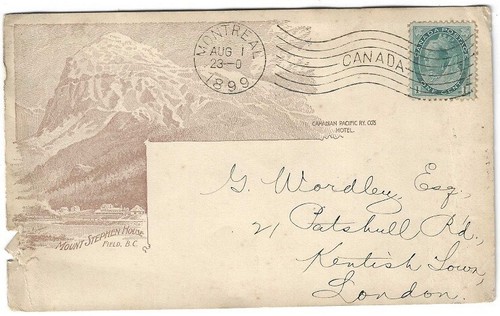 MONTREAL
AUG 1
23-0
1899
CANADA
CANADA POSTAGE
1 ONE CENT 1
CANADIAN PACIFIC RY. CO'S
HOTEL.
MOUNT STEPHEN HOUSE
FIELD, B.C.
G. Wordley, Esq.,
21 Patshull Rd.,
Kentish Town,
London.